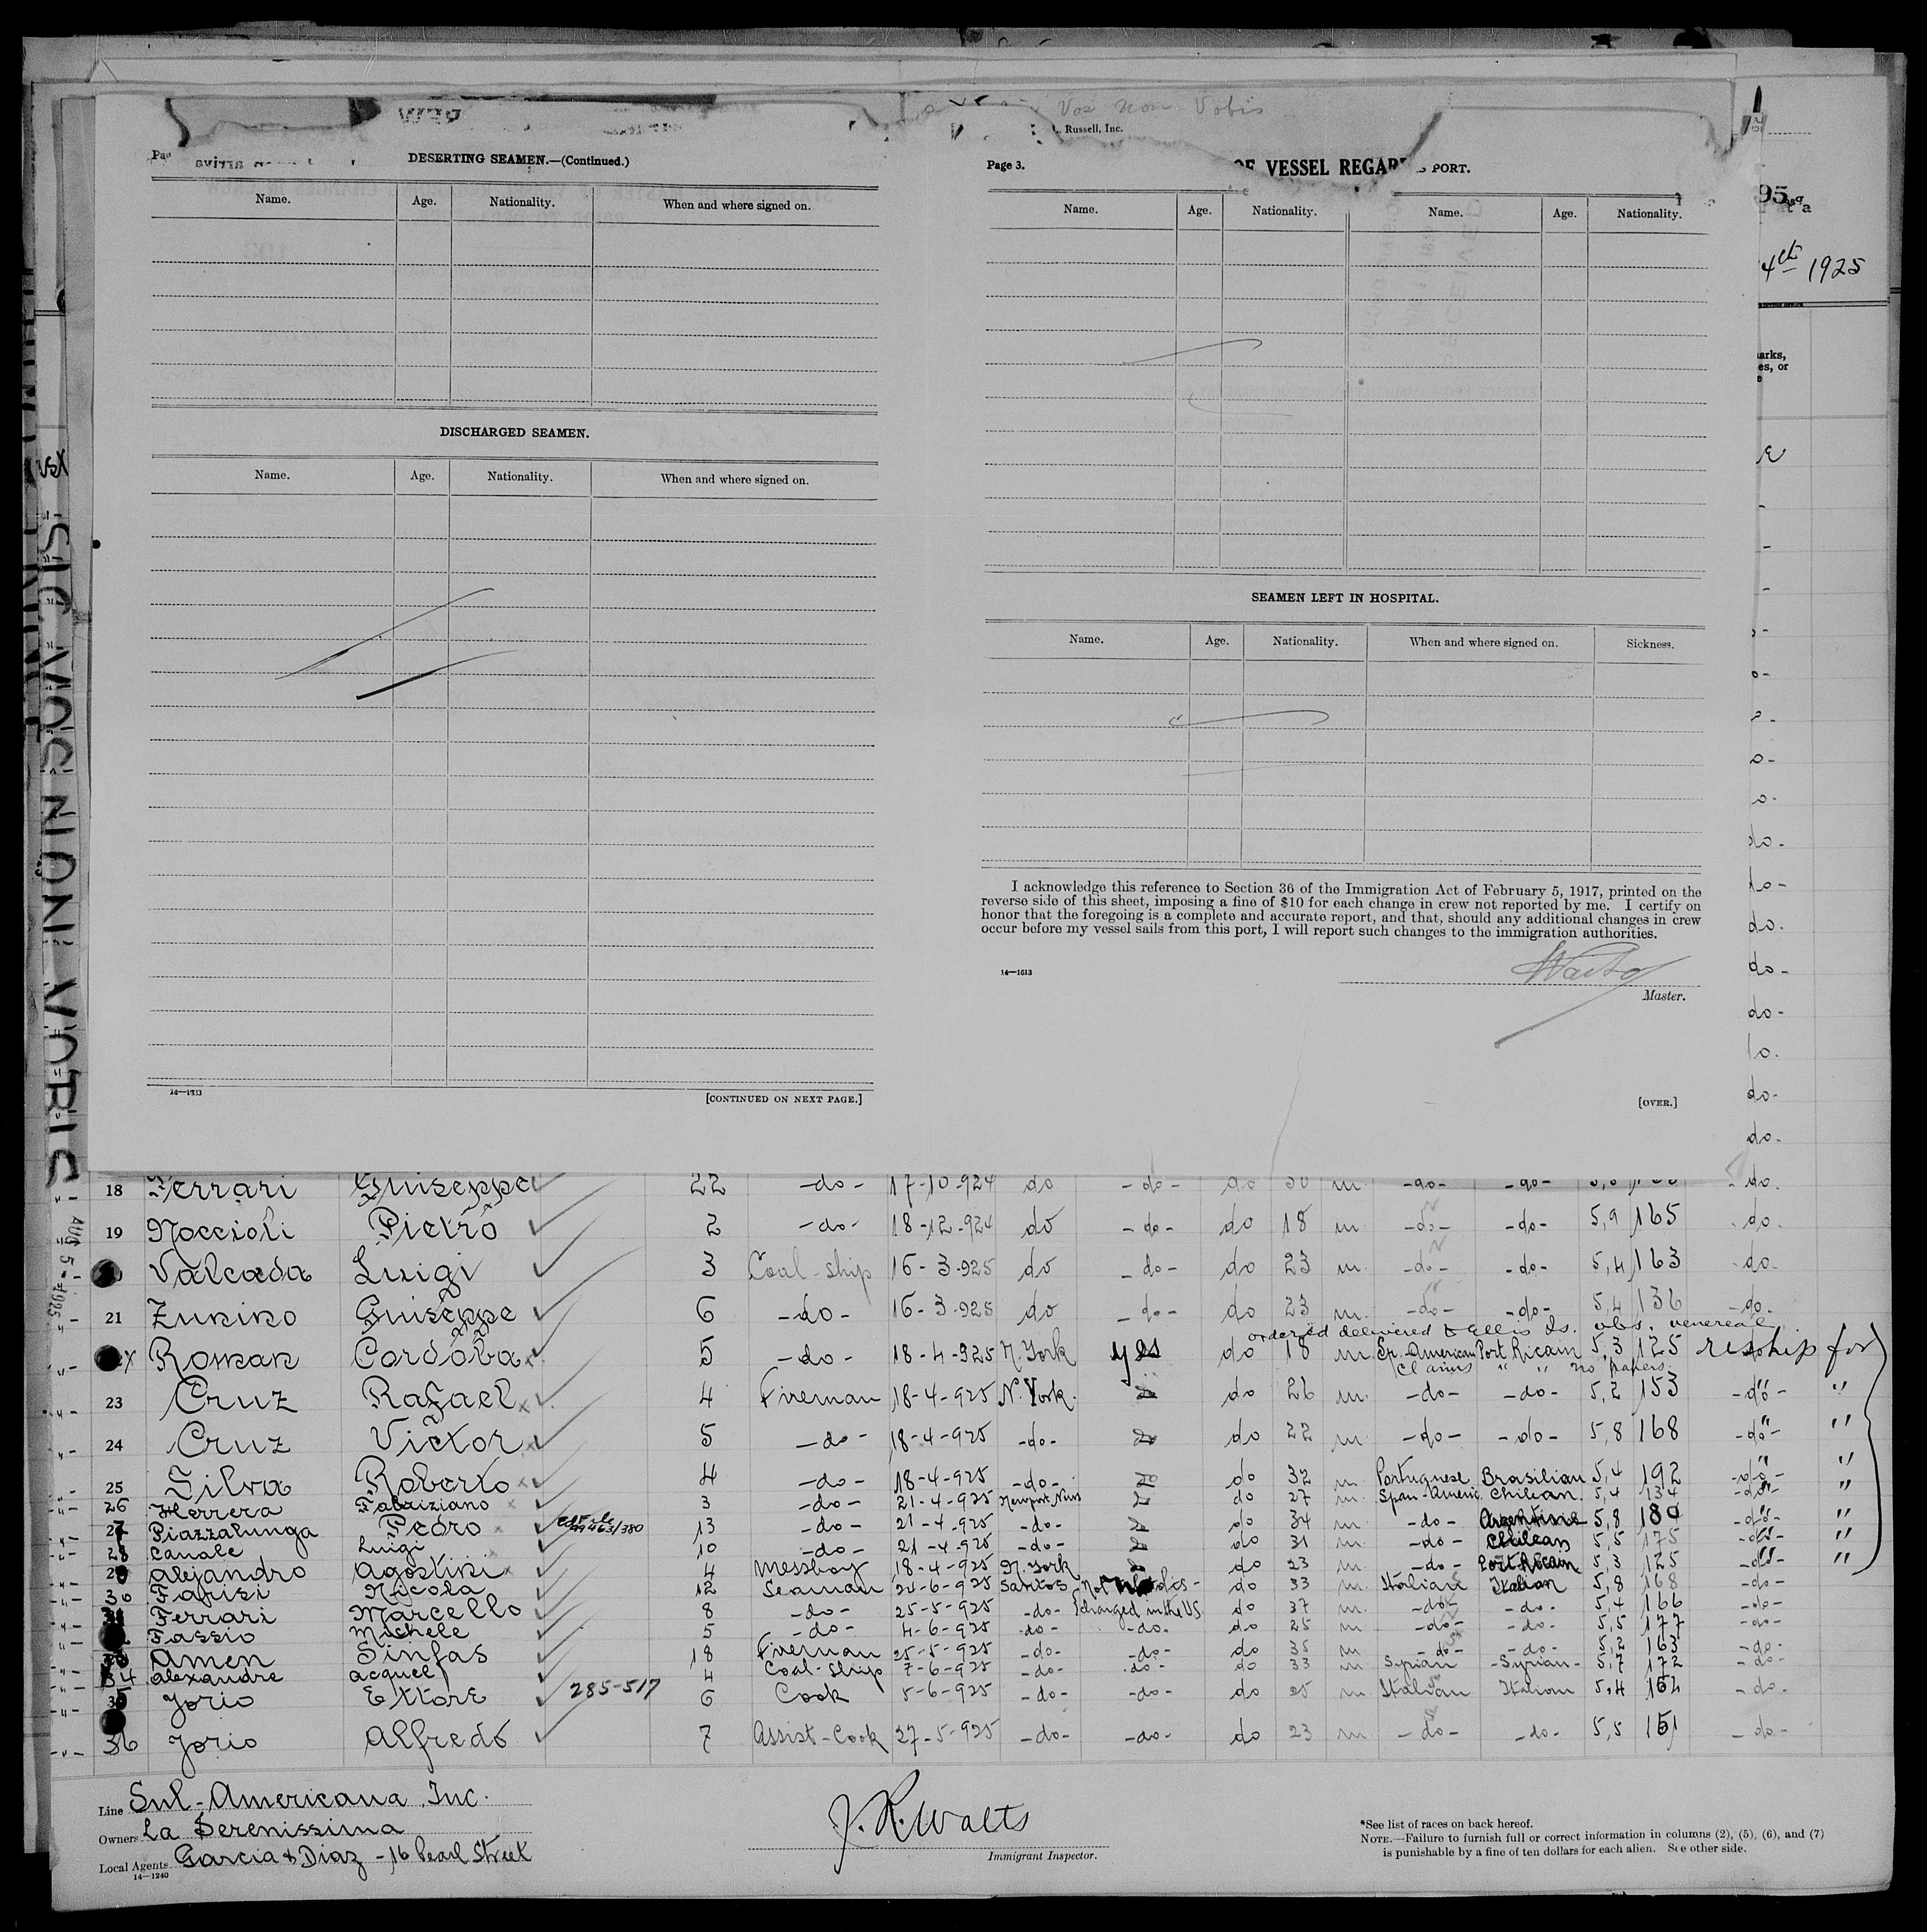 Vos non Vobis
L. Russell, Inc.
DESERTING SEAMEN.—(Continued.)
Name. Age. Nationality. When and where signed on.
DISCHARGED SEAMEN.
Name. Age. Nationality. When and where signed on.
14—1613
[CONTINUED ON NEXT PAGE.]
Page 3.
OF VESSEL REGAR PORT.
Name. Age. Nationality. Name. Age. Nationality.
SEAMEN LEFT IN HOSPITAL.
Name. Age. Nationality. When and where signed on. Sickness.
I acknowledge this reference to Section 36 of the Immigration Act of February 5, 1917, printed on the
reverse side of this sheet, imposing a fine of $10 for each change in crew not reported by me. I certify on
honor that the foregoing is a complete and accurate report, and that, should any additional changes in crew
occur before my vessel sails from this port, I will report such changes to the immigration authorities.
14—1613
Master.
[OVER.]
95
4th 1925
arks,
es, or
e
SIC VOS NON VOBIS
AUG 5 - 1925
18 Ferrari Giuseppe 22 -do- 17-10-924 do -do- do 30 m -do- -do- -do-
19 Noccioli Pietro 2 -do- 18-12-924 do -do- do 18 m -do- -do- 5,9 165 -do-
Valcada Luigi 3 Coal-ship 16-3-925 do -do- do 23 m -do- -do- 5,4 163 -do-
21 Zunino Guiseppe 6 -do- 16-3-925 do -do- do 23 m -do- -do- 5,4 136 -do-
ordered delivered to Ellis Is. obs. venereal
Roman Cordóba x 5 -do- 18-4-925 N. York yes do 18 m Sp. American Port Rican 5,3 125 reship for
Claims " " no papers
23 Cruz Rafael x 4 Fireman 18-4-925 N. York. do 26 m -do- -do- 5,2 153 -do- "
24 Cruz Victor x 5 -do- 18-4-925 -do- do 22 m -do- -do- 5,8 168 -do- "
25 Silva Roberto x 4 -do- 18-4-925 -do- do 32 m Portuguese Brasilian 5,4 192 -do- "
26 Herrera Fabriziano x 3 -do- 21-4-925 Newport News do 27 m Span-Americ. Chilean. 5,4 134 -do- "
27 Piazzalunga Pedro x 99463/380 13 -do- 21-4-925 -do- do 34 m -do- Argentine 5,8 180 -do- "
28 Canale Luigi 10 -do- 21-4-925 -do- do 31 m -do- Chilean 5,5 175 -do- "
29 Alejandro Agostini x 4 Messboy 18-4-925 N. York do 23 m -do- Port Rican 5,3 125 -do- "
30 Farisi Nicola 12 Seaman 24-6-925 Santos Not to be dis- do 33 m Italian Italian 5,8 168 -do-
Ferrari Marcello 8 -do- 25-5-925 -do- charged in the US do 37 m -do- -do- 5,4 166 -do-
Fassio Michele 5 -do- 4-6-925 -do- -do- do 25 m -do- -do- 5,5 177 -do-
Amen Sinfas 18 Fireman 25-5-925 -do- -do- do 35 m -do- -do- 5,2 163 -do-
34 Alexandre Acquel 4 Coal-ship 7-6-925 -do- -do- do 33 m Syrian -Syrian- 5,7 172 -do-
35 Jorio Ettore 285-517 6 Cook 5-6-925 -do- -do- do 25 m Italian Italian 5,4 162 -do-
36 Jorio Alfredo 7 Assist-Cook 27-5-925 -do- -do- do 23 m -do- -do- 5,5 151 -do-
Line Sul-Americana. Inc.
Owners La Serenissima
Local Agents Garcia & Diaz - 16 Pearl Street
14—1240
J. R. Walts
Immigrant Inspector.
*See list of races on back hereof.
NOTE.—Failure to furnish full or correct information in columns (2), (5), (6), and (7)
is punishable by a fine of ten dollars for each alien. See other side.